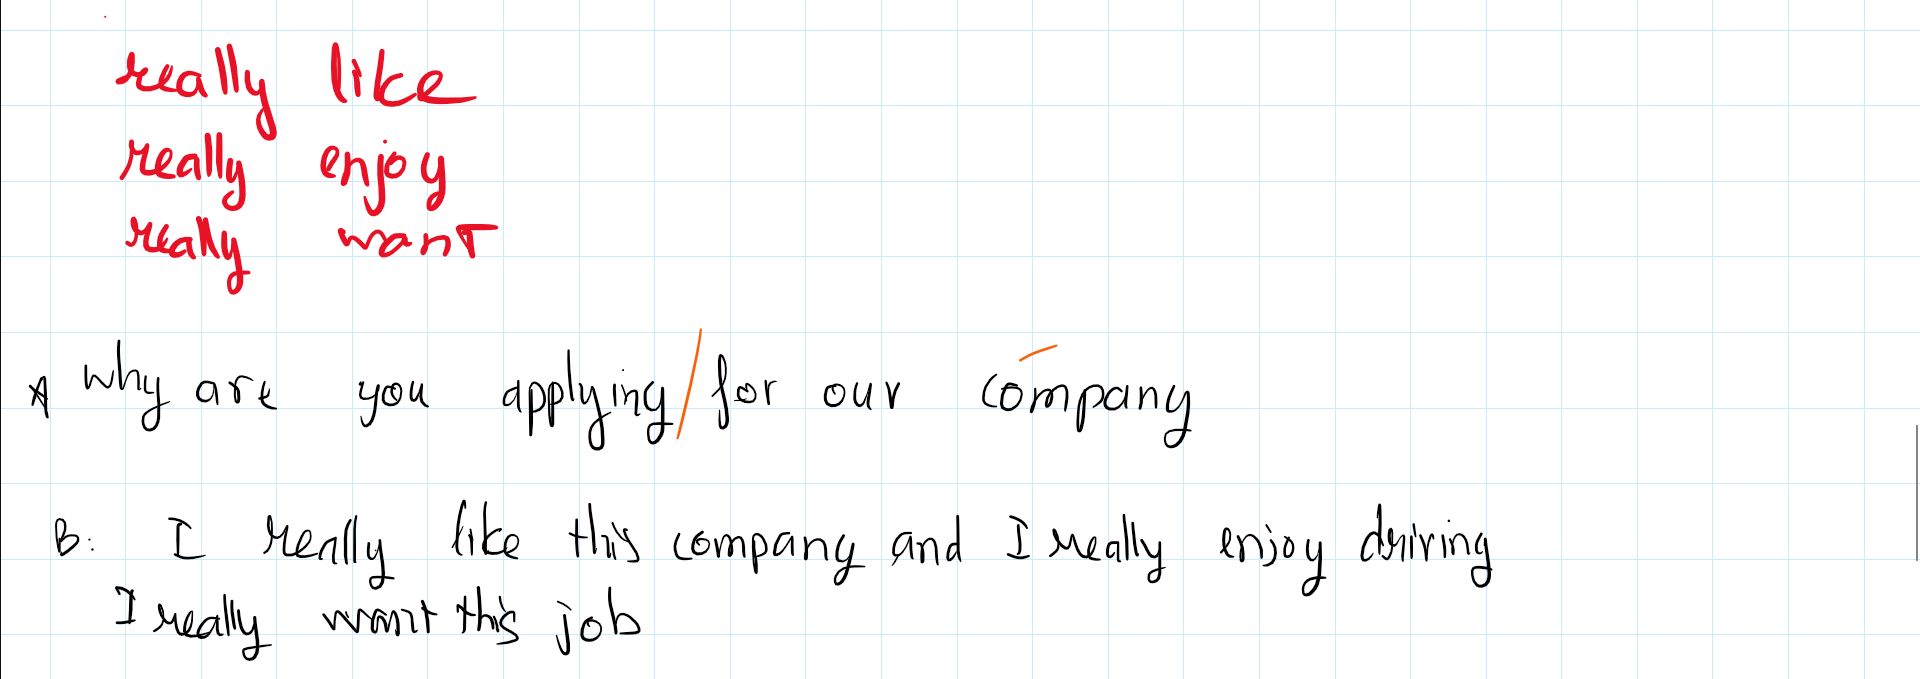 really like
really enjoy
really want
A why are you applying/for our company
B: I really like this company and I really enjoy driving
I really want this job